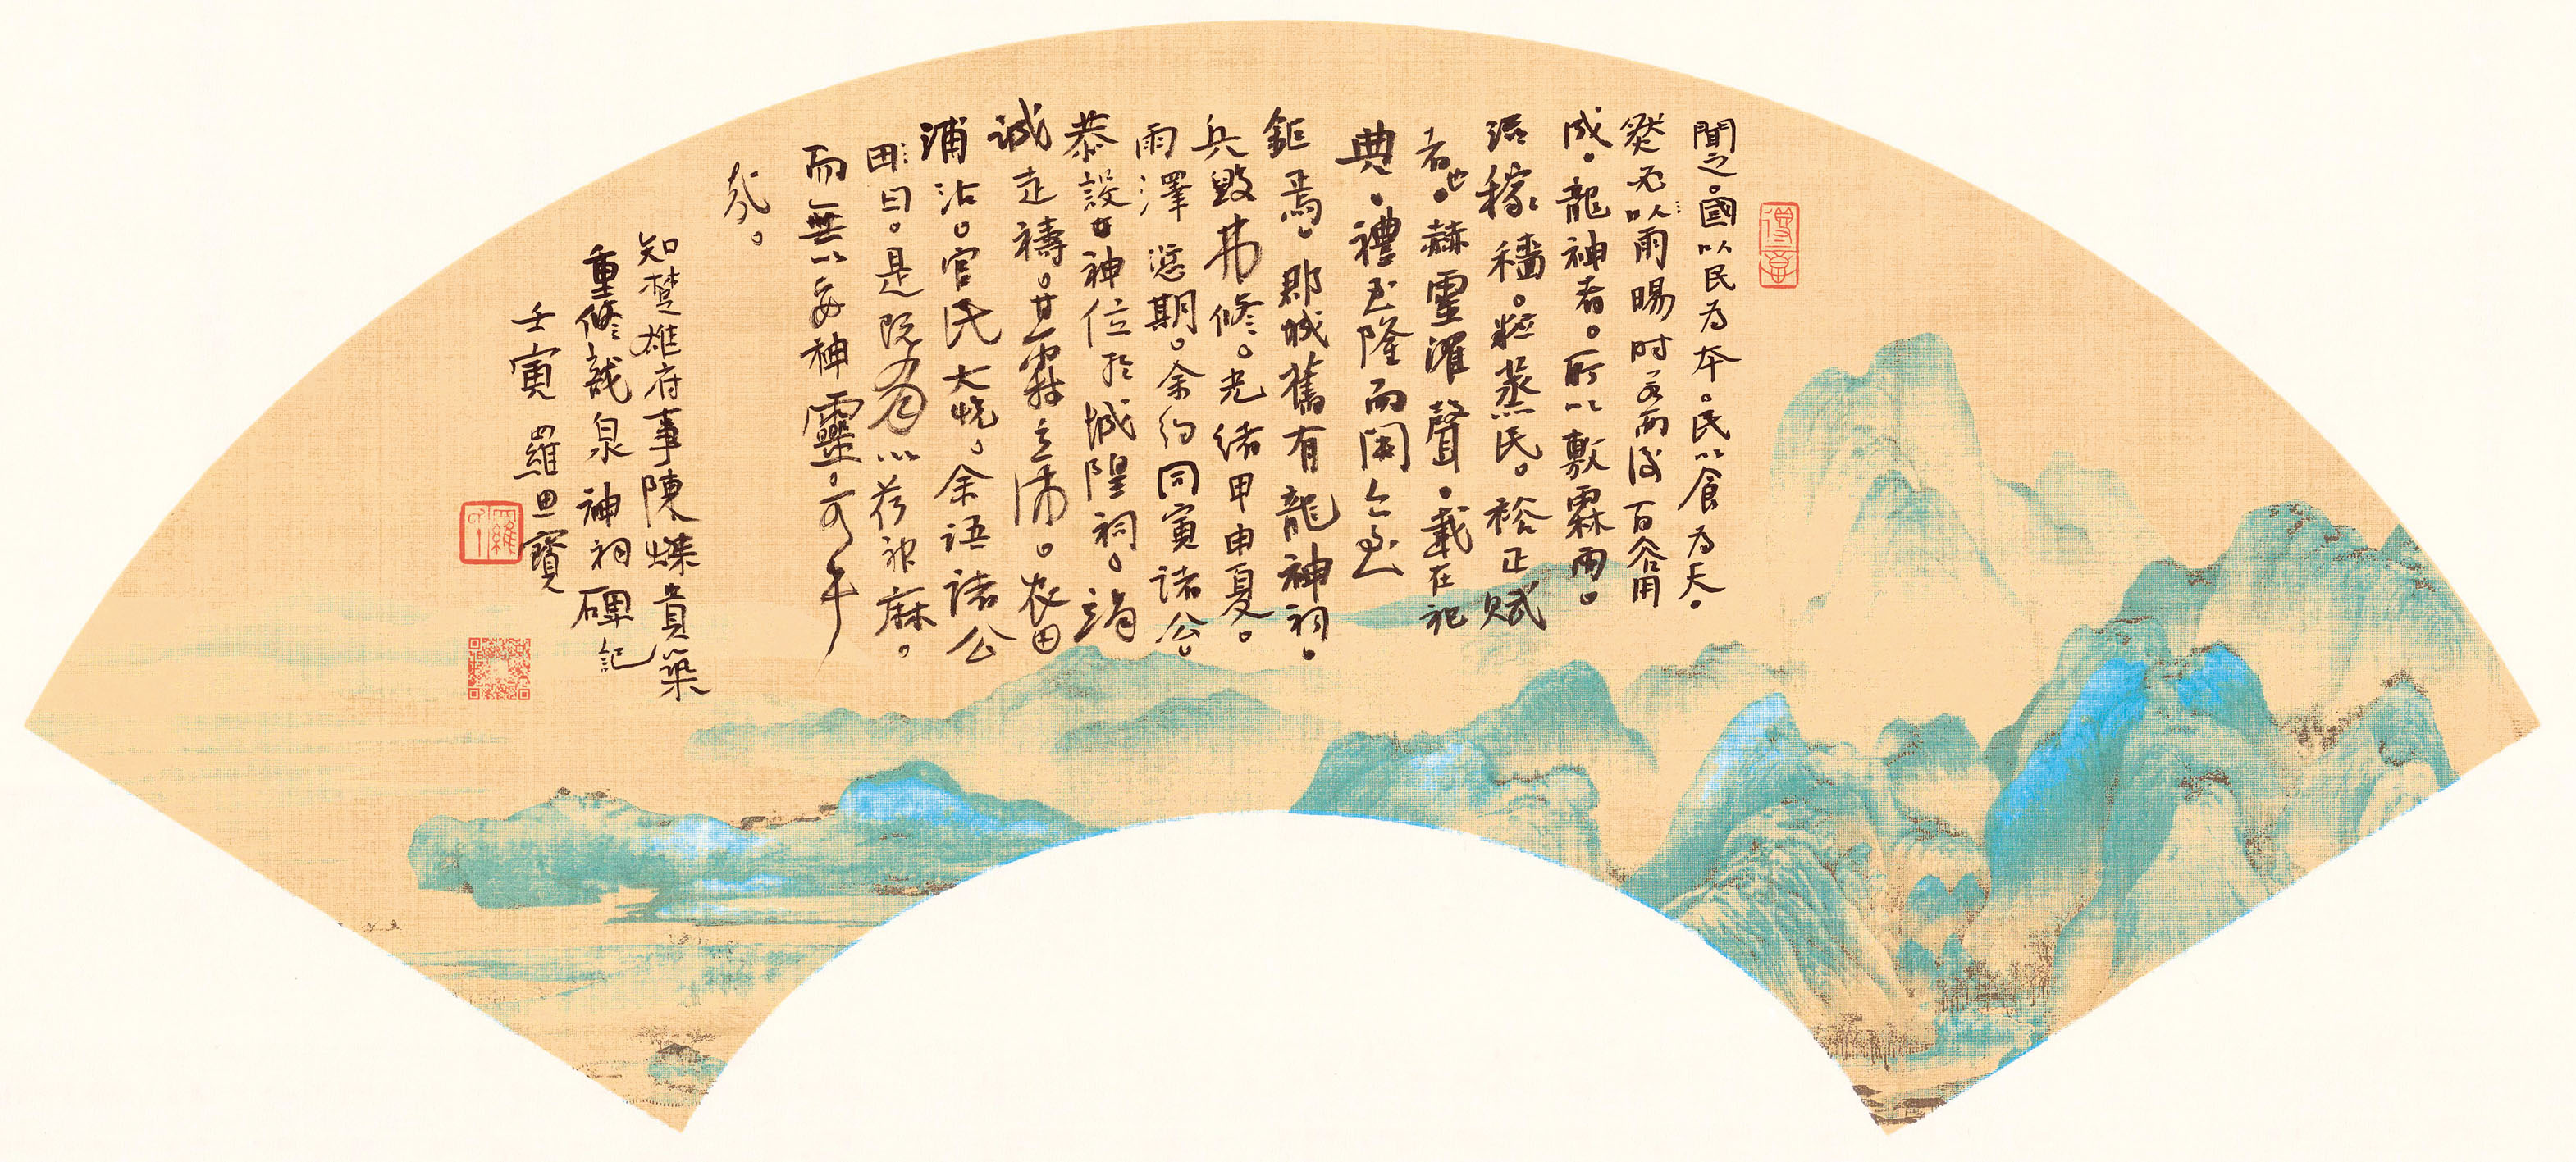 聞之。國以民為本。民以食為天。
然必以雨暘時若而後百谷用
成。龍神者。所以敷霖雨。
滋稼穡。粒蒸民。裕正賦
者也。赫靈濯聲。載在祀
典。禮至隆而闓
鉅焉。郡城舊有龍神祠。
兵毀弗修。光緒甲申夏。
雨澤愆期。余約同寅諸公。
恭設神位於城隍祠。竭
誠走禱。甘霖立沛。農田
浦沾。官民大悅。余語諸公
曰。是既有以荷神庥。
而無以妥神靈。可乎
哉。
知楚雄府事陳燦貴築
重修龍泉神祠碑記
壬寅 羅思寶